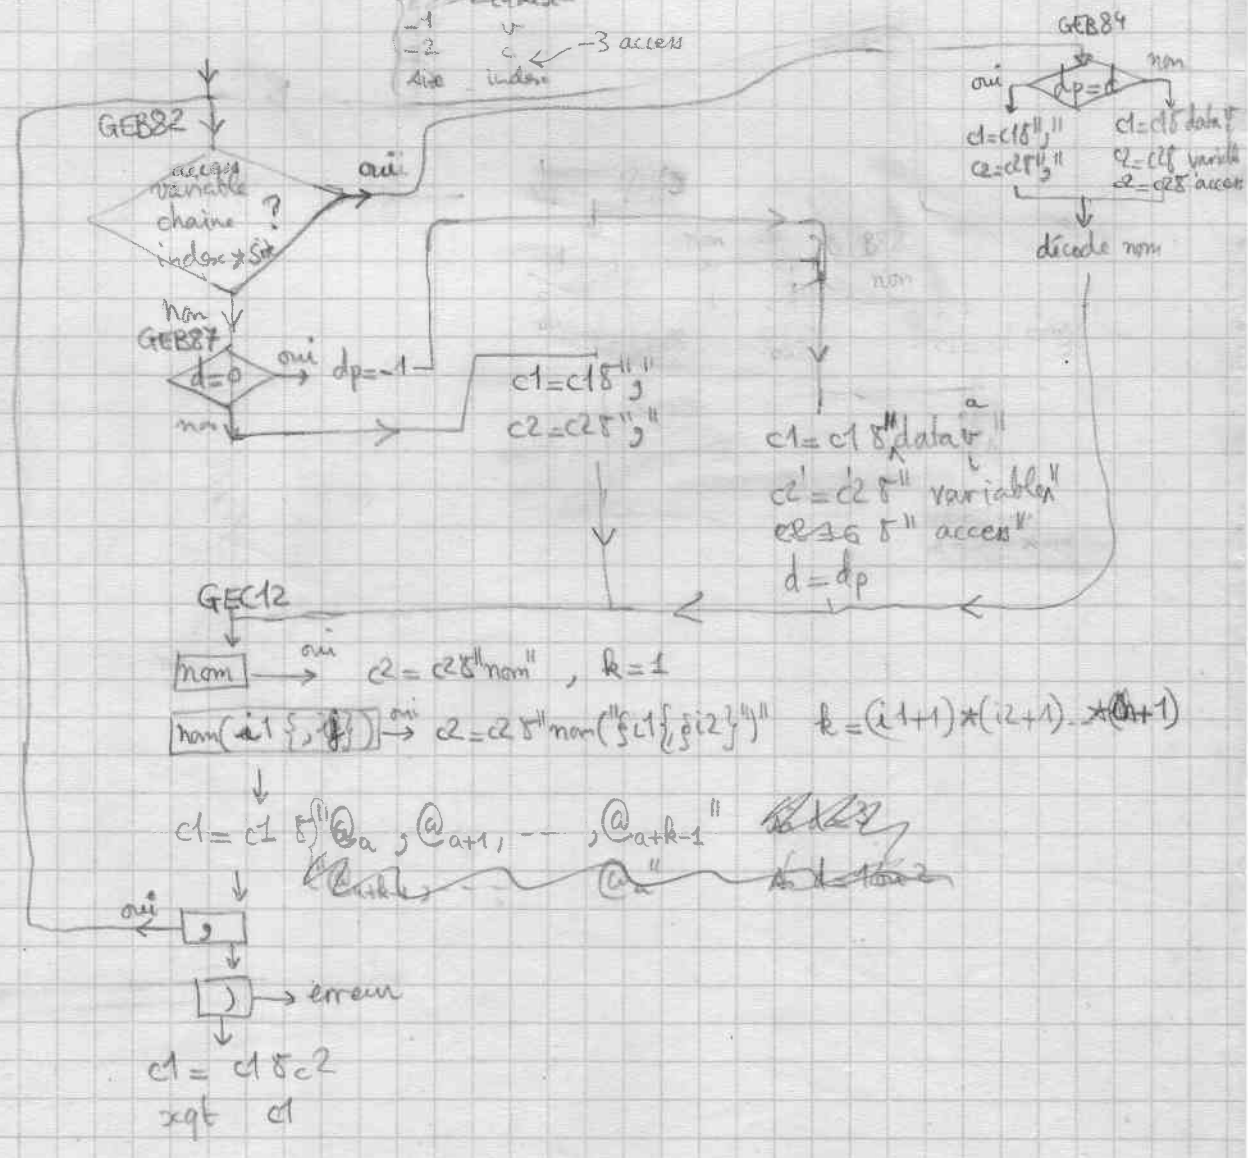 -1 v
-2 c -3 access
size index
GEB84
oui dp=d non
c1=c1δ","
c2=c2δ","
c1=c1δ data v
c2=c2δ variable
c2=c2δ access
décode nom
GEB82
access
variable
chaine ?
index *
oui
non
GEB87
d=0 oui dp=-1
non
c1=c1δ","
c2=c2δ","
a
c1=c1δ"data v"
c2=c2δ" variable"
δ" access"
d=dp
GEC12
nom oui c2=c2δ"nom", k=1
nom(i1{, }) oui c2=c2δ"nom("{i1{,}i2}")" k=(i1+1)*(i2+1)..*( +1)
c1=c1 δ"@a ,@a+1, --- ,@a+k-1"
oui ,
) → erreur
c1= c1δc2
xqt c1